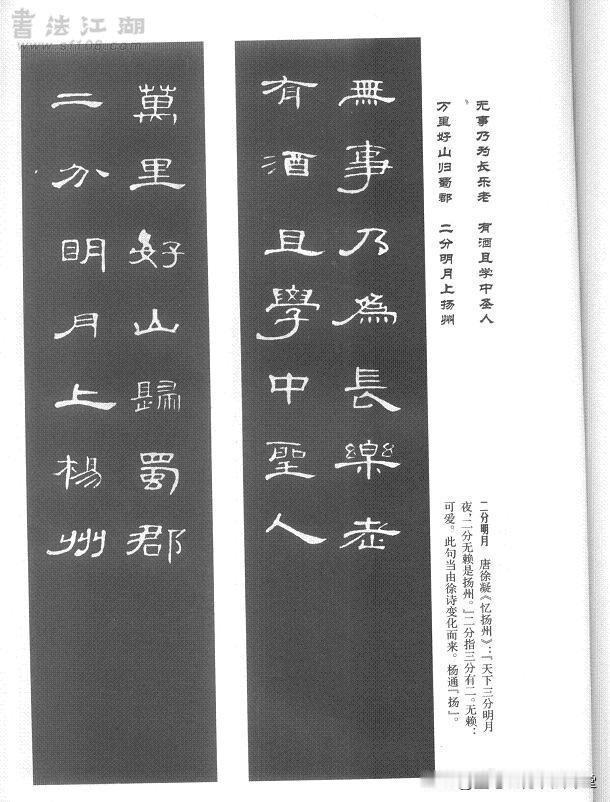 書法江湖
www.sf108.com
無事乃為長樂老
有酒且學中聖人
萬里好山歸蜀郡
二分明月上楊州
无事乃为长乐老 有酒且学中圣人
万里好山归蜀郡 二分明月上扬州
二分明月 唐徐凝《忆扬州》：「天下三分明月
夜，二分无赖是扬州。」二分指三分有二。无赖：
可爱。此句当由徐诗变化而来。杨通「扬」。